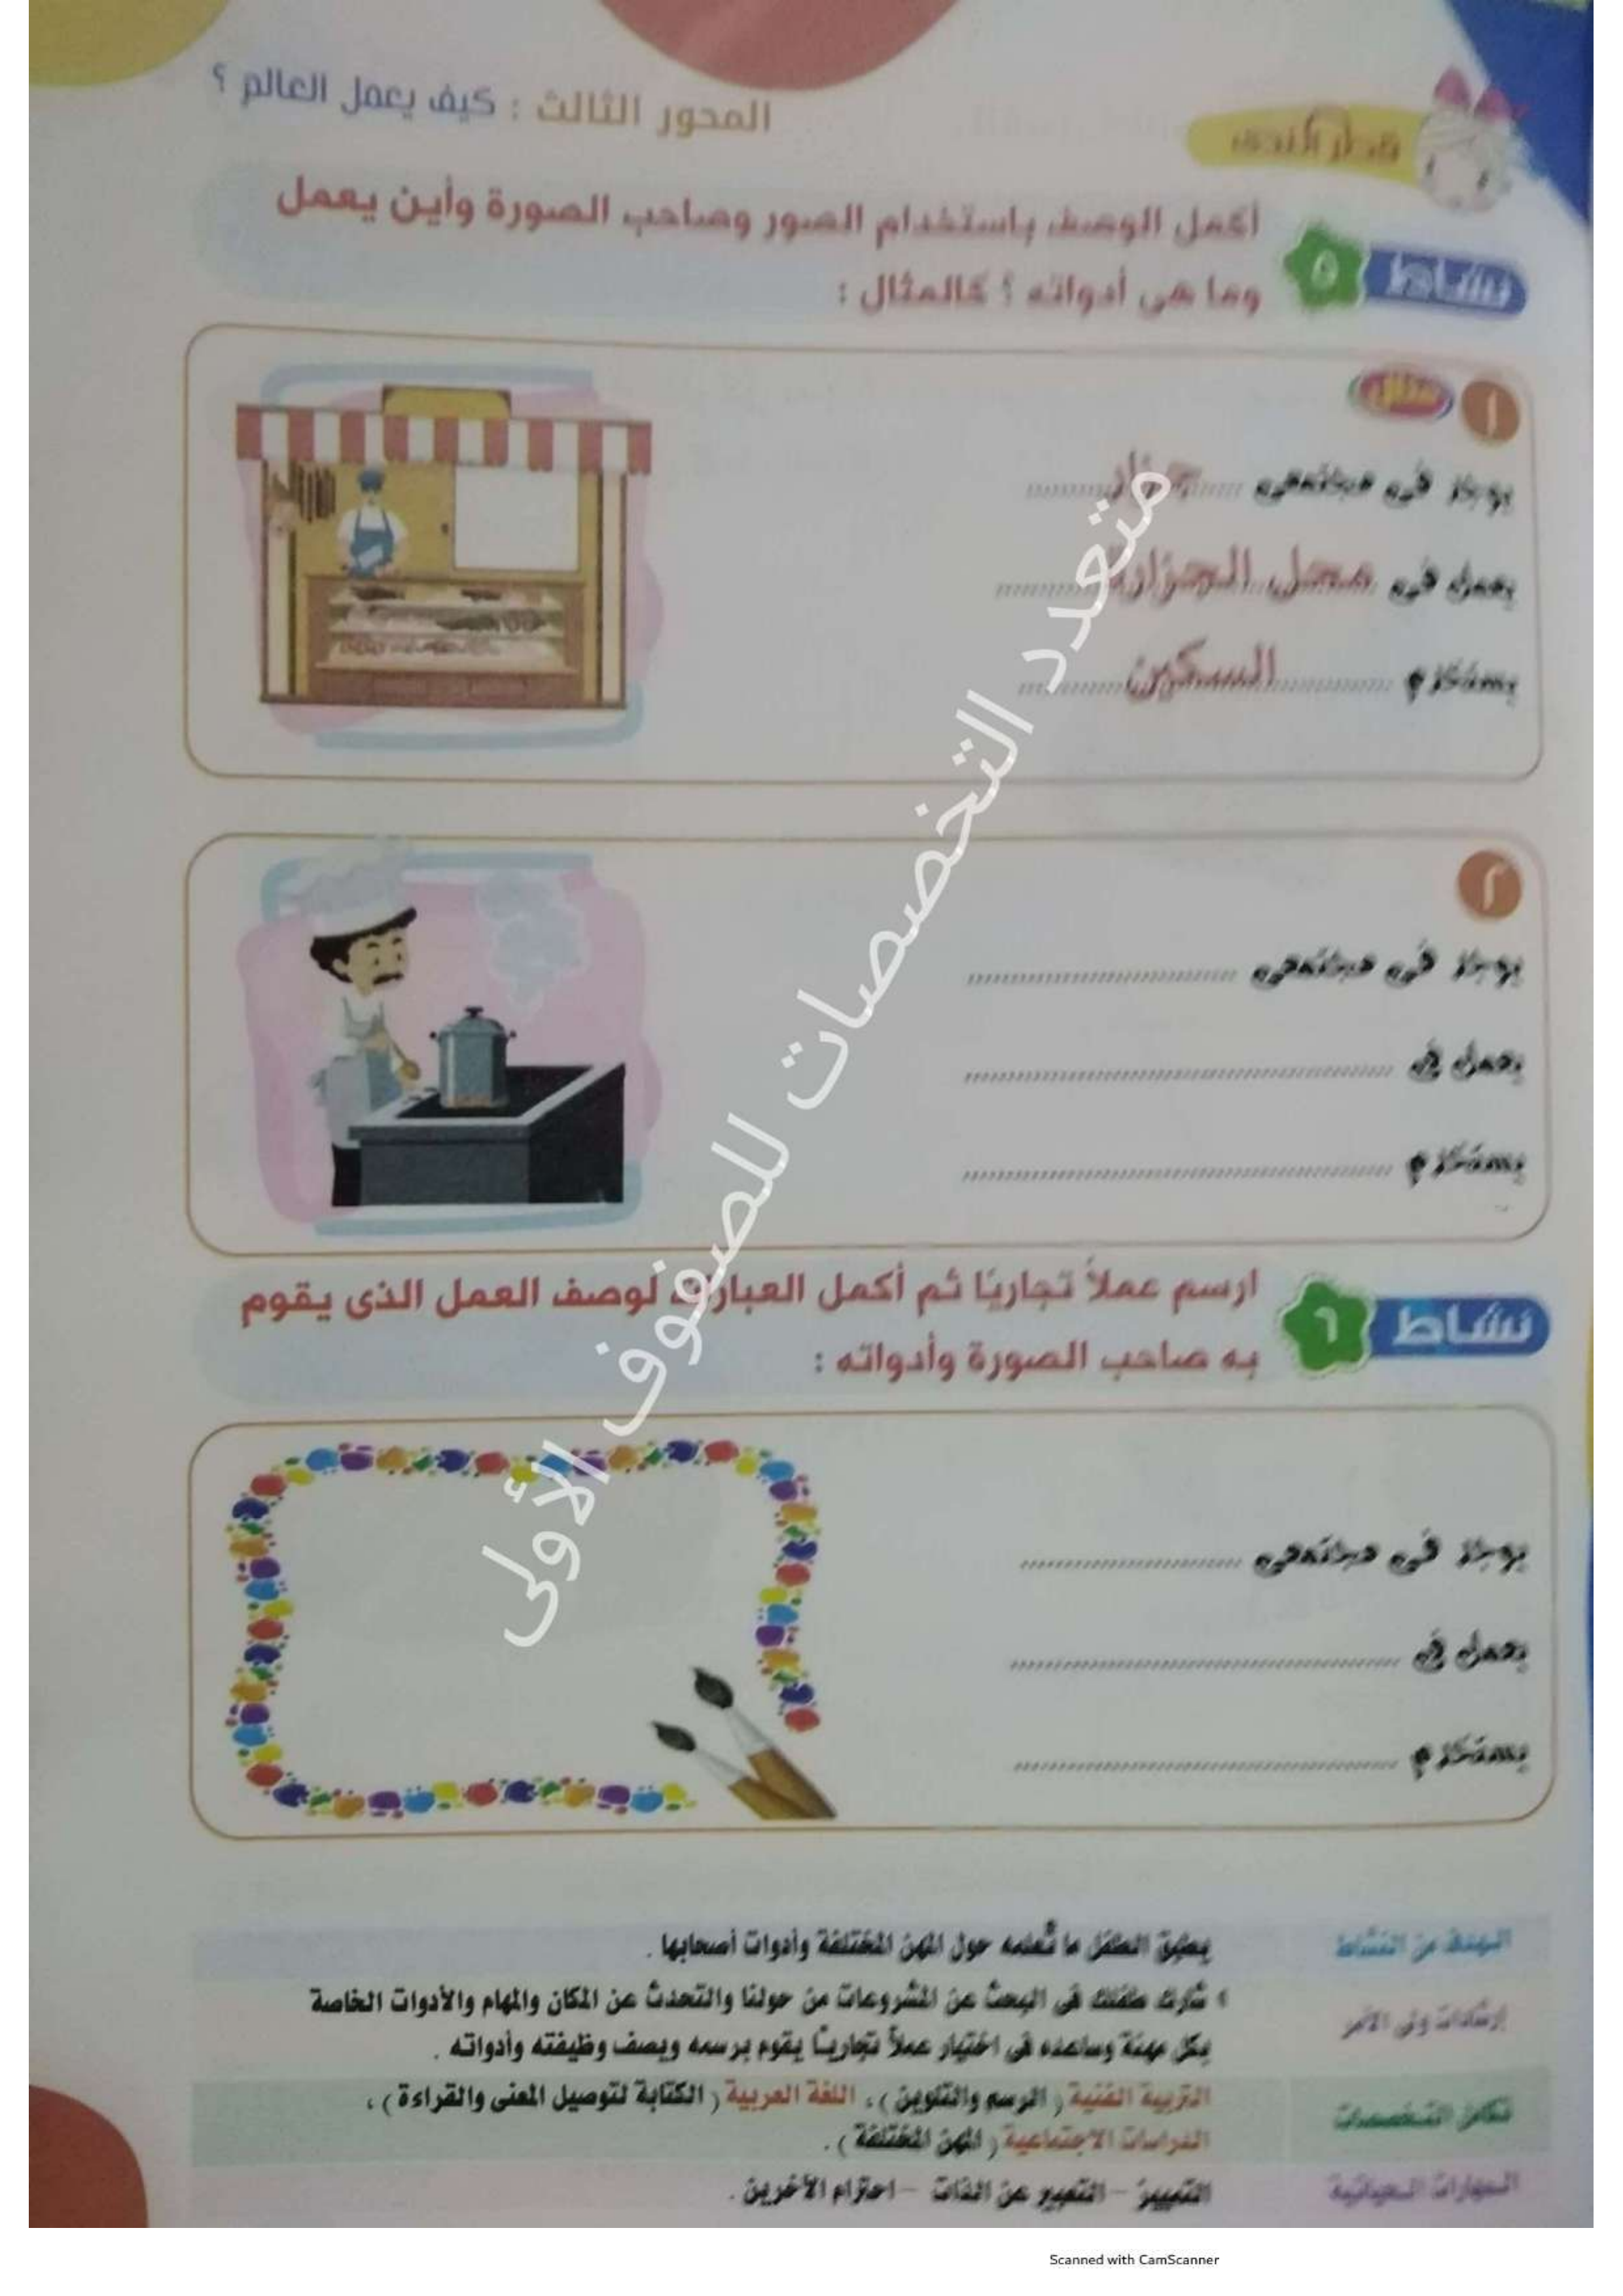 المحور الثالث : كيف يعمل العالم ؟
قطر الندى
نشاط ٥
أكمل الوصف باستخدام الصور وصاحب الصورة وأين يعمل
وما هى أدواته ؟ كالمثال :
١ مثال
يوجد فى مجتمعى جزار
يعمل فى محل الجزارة
يستخدم السكين
٢
يوجد فى مجتمعى
يعمل فى
يستخدم
نشاط ٦
ارسم عملاً تجاريًا ثم أكمل العبارات لوصف العمل الذى يقوم
به صاحب الصورة وأدواته :
يوجد فى مجتمعى
يعمل فى
يستخدم
الهدف من النشاط
يطبق الطفل ما تعلمه حول المهن المختلفة وأدوات أصحابها .
إرشادات ولى الأمر
شارك طفلك فى البحث عن المشروعات من حولنا والتحدث عن المكان والمهام والأدوات الخاصة
بكل مهنة وساعده فى اختيار عملاً تجاريًا يقوم برسمه ويصف وظيفته وأدواته .
تكامل التخصصات
التربية الفنية ( الرسم والتلوين ) ، اللغة العربية ( الكتابة لتوصيل المعنى والقراءة ) ،
الدراسات الاجتماعية ( المهن المختلفة ) .
المهارات الحياتية
التمييز – التعبير عن الذات – احترام الآخرين .
متعدد التخصصات للصفوف الأولى
Scanned with CamScanner